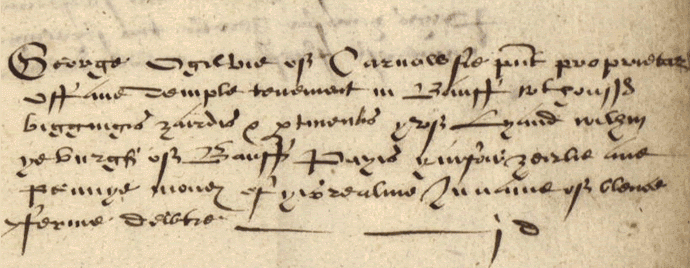 George Ogilvie of Carnowsie pnt proprietar
off ane temple tenement in Banff wt houss
biggingis zairdis & ptinentis yrof Lyand within
ye burgh of Banff Payis yairfoir zeirlie ane
pennye money of yis realme In name of blence
ferme dewtie j d